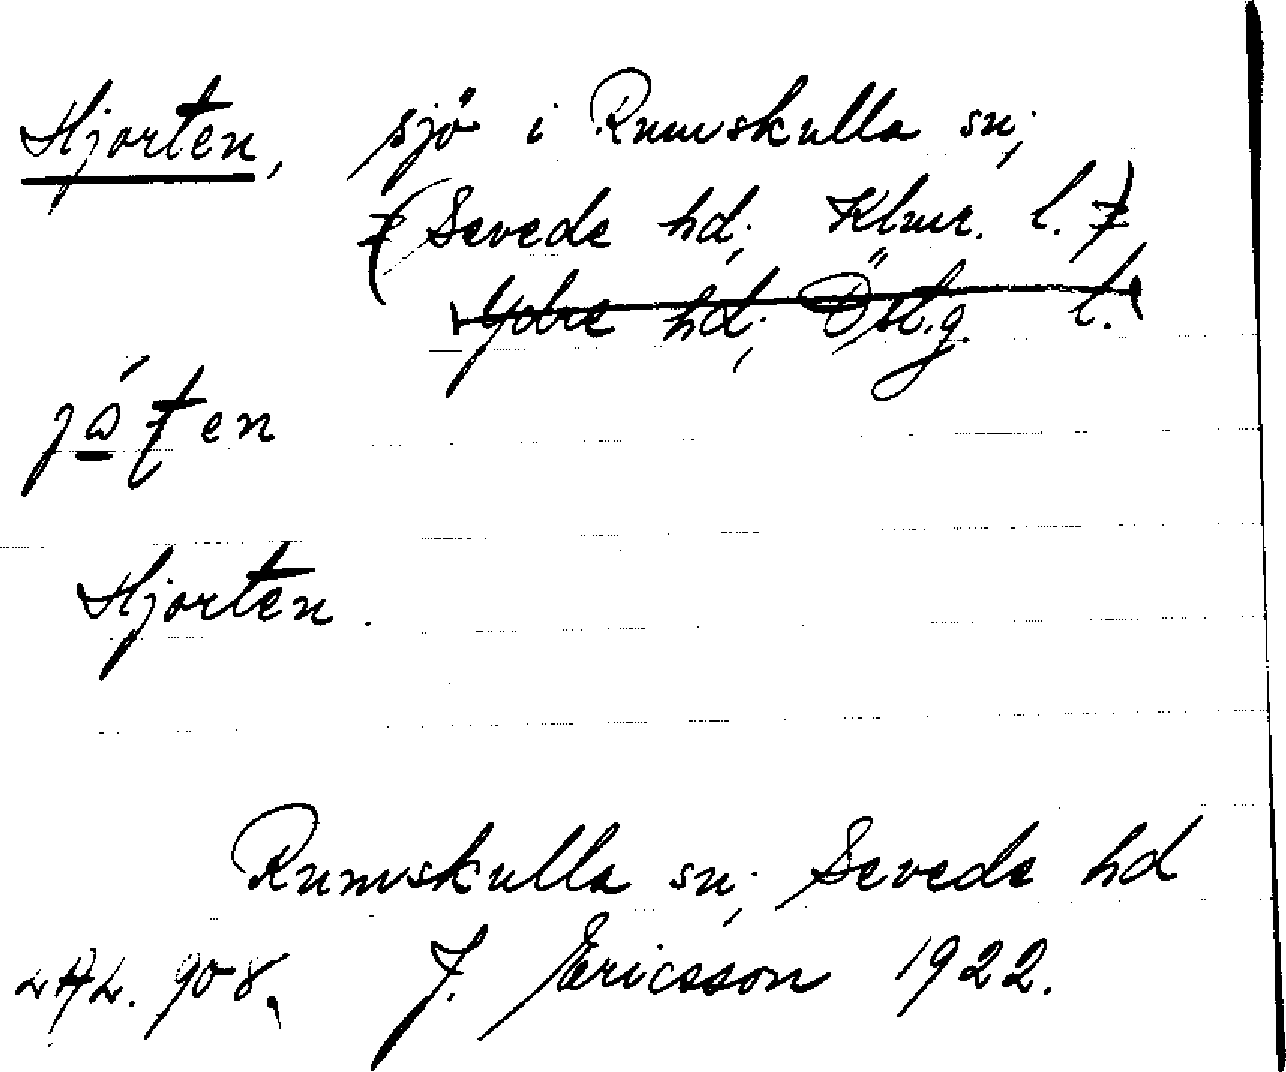 Hjorten, sjö i Rumskulla sn;
(Sevede hd; Klmr. l.)
Ydre hd; Östg. l.
Hjorten.
Rumskulla sn; Sevede hd
908. J. Ericsson 1922.